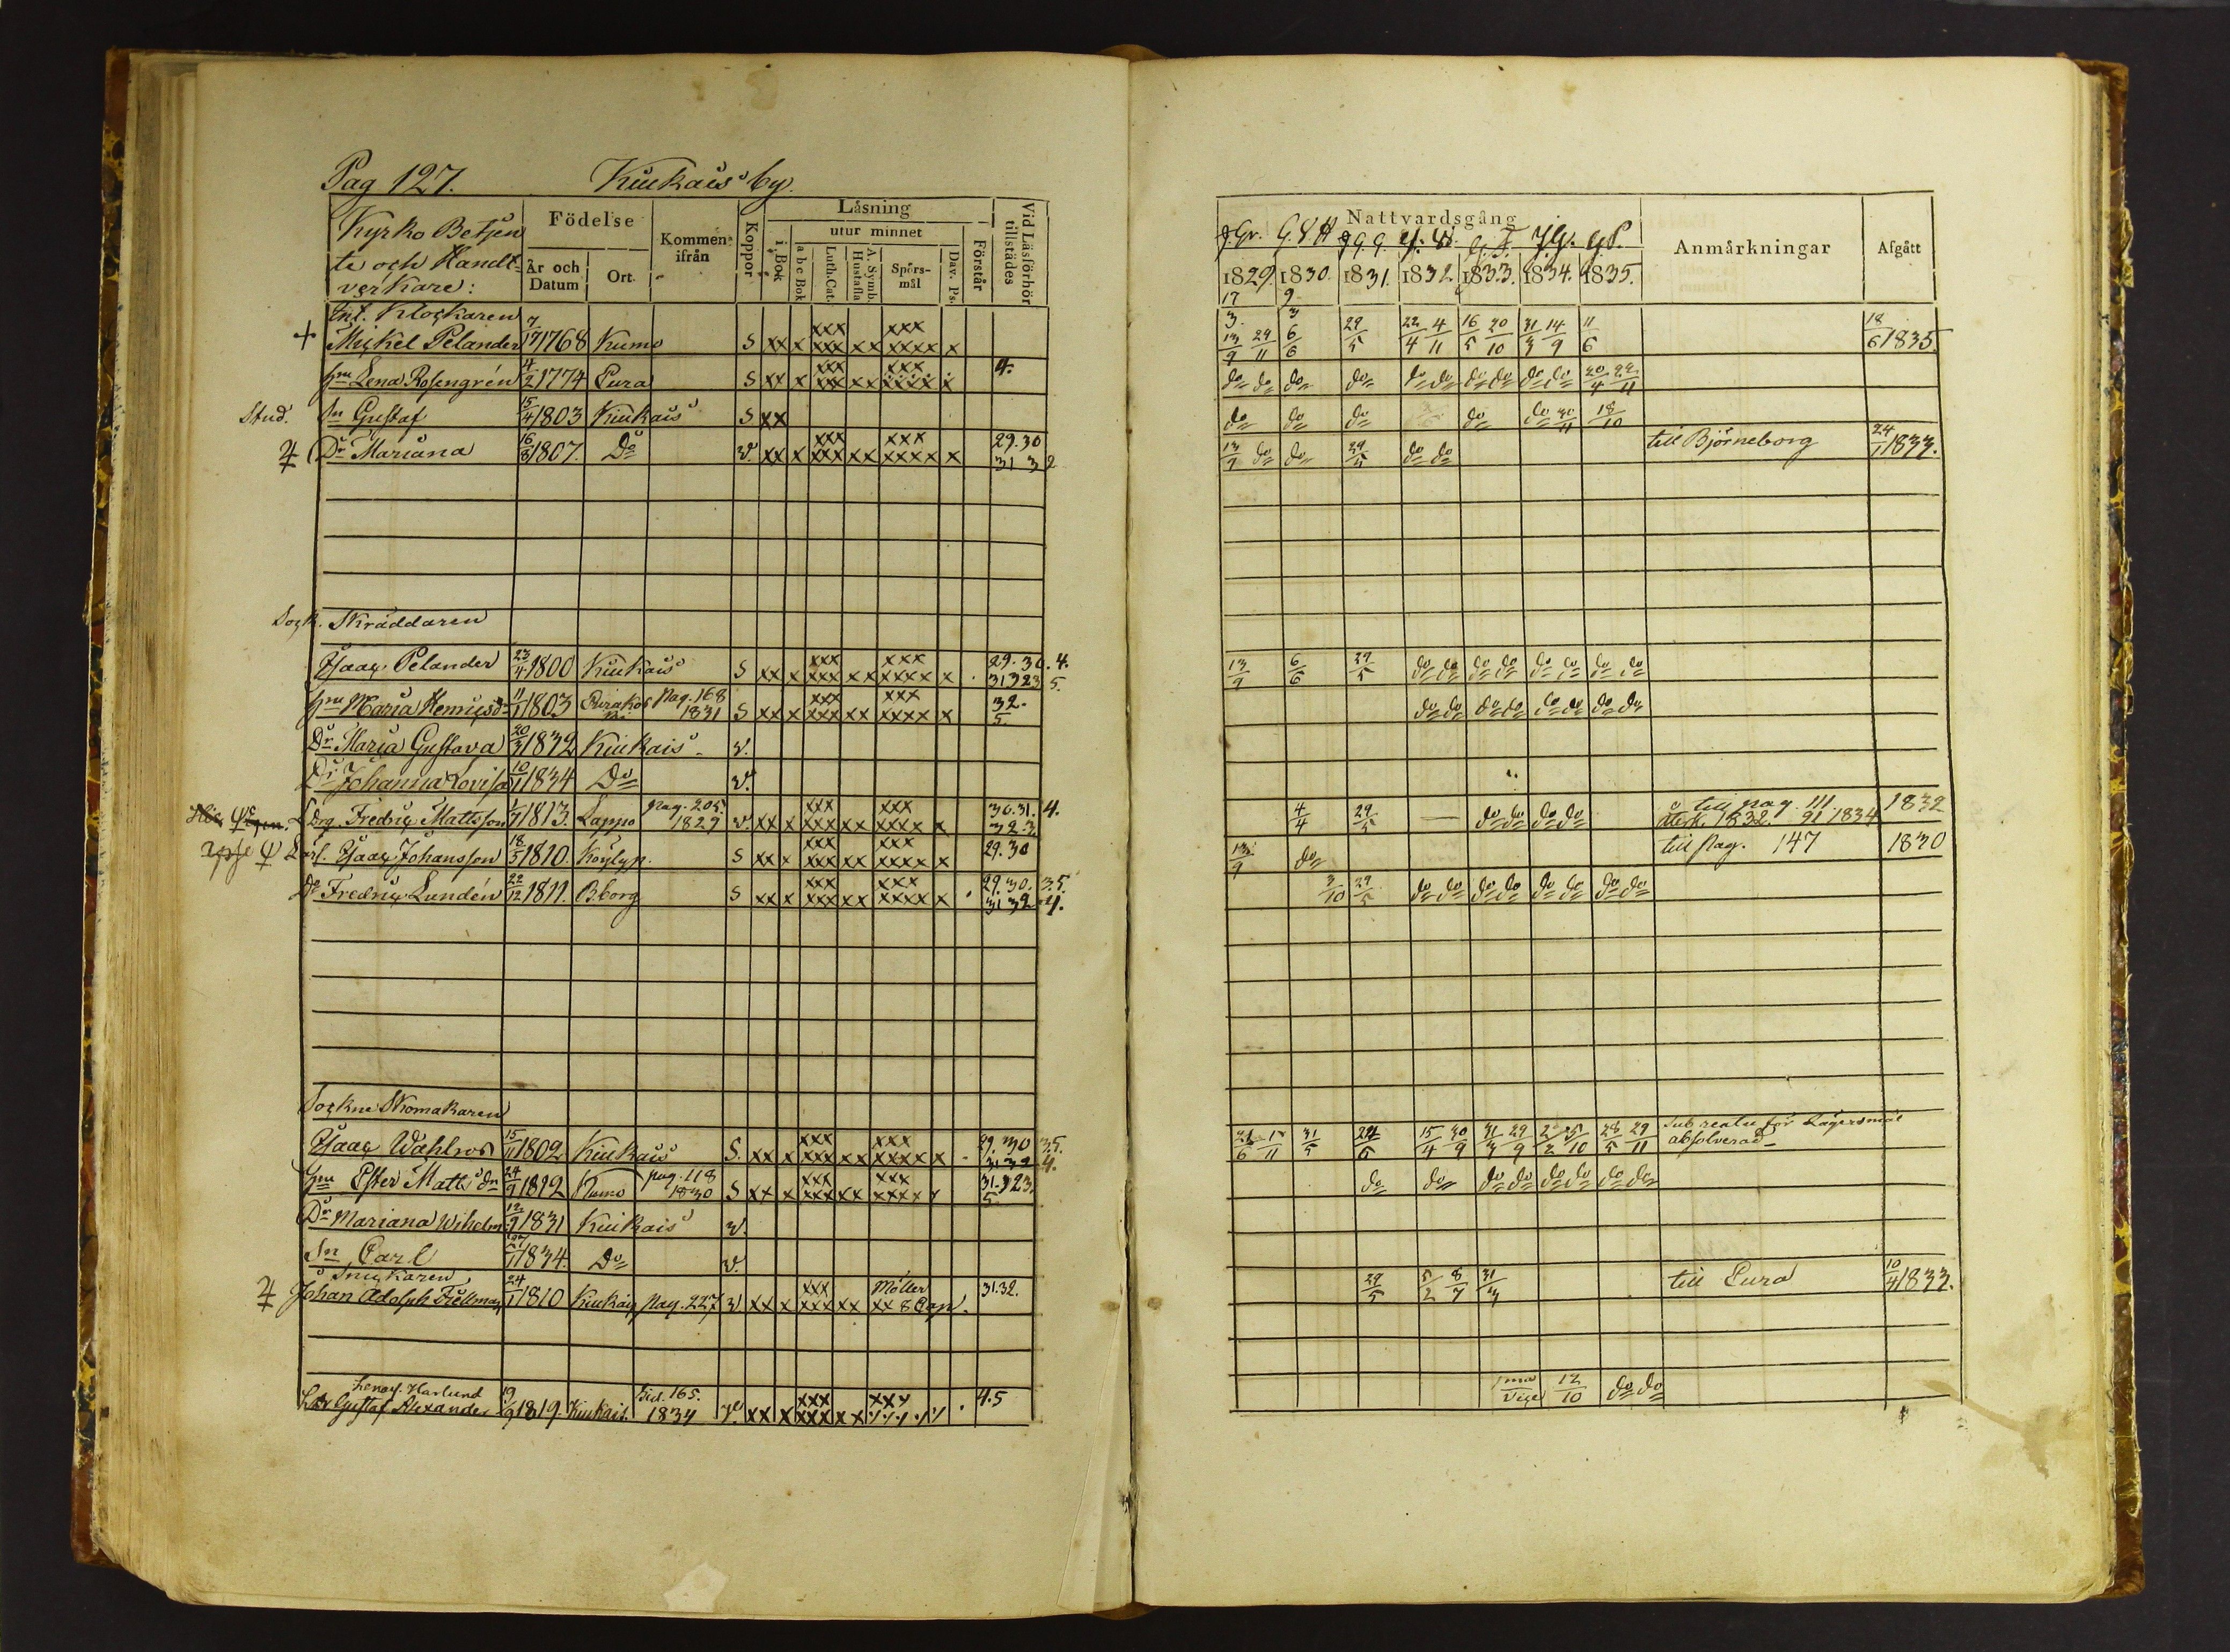 Pag 127. Kiukais by.
Kyrko Betjen
te och Handt-
verkare:
Födelse
År och Datum
Ort.
Kommen ifrån
Koppor
Läsning
i Bok
utur minnet
a b c Bok
Luth. Cat.
A. Symb. Hustafla
Spörs-mål
Dav. Ps.
Förstår
Vid Läsförhör tillstädes
Nattvardsgång
1829. 1830. 1831. 1832. 1833. 1834. 1835.
Anmärkningar
Afgått
Klockaren
+ Mickel Pelander 7/12 1768 Kumo S xx x xxx xxx xx xxx xxxx x 13/9 29/11 6/6 29/5 22/4 4/11 16/5 20/10 31/3 14/9 11/6 18/6 1835.
Hru Lena Rosengrén 4/2 1774 Eura S xx x xxx xxx xx xxx xxxx x 4. do do do do do do do do do do 20/4 22/11
Stud. Sn Gustaf 15/4 1803 Kiukais S xx do do do do do 30/11 18/10
Dr Mariana 16/8 1807. Do v. xx x xxx xxx xx xxx xxxx x 29.30 31 32 13/9 do do 29/5 do do till Björneborg 24/1 1833.
Sock. Skräddaren
Isaac Pelander 23/4 1800 Kiukais S xx x xxx xxx xx xxx xxxx x . 29.30.4. 31 32 3 5. 13/9 6/6 29/5 do do do do do do do do
Hru Maria Henricsdr 11/1 1803 Pag. 168 1831 S xx x xxx xxx xx xxx xxxx x 32. 5 do do do do do do do do
Dr Maria Gustava 20/3 1832 Kiukais v.
Dr Johanna Lovisa 10/1 1834 Do v.
Drg. Fredric Mattsson 1/7 1813. Lappo pag. 205 1829 v. xx x xxx xxx xx xxx xxxx x 30.31. 4. 32.3. 4/4 29/5 — do do do do till pag. 111 1832
återk. 1832. 91 1834
Lärl. Isaac Johansson 18/5 1810. Köylyp. S xx x xxx xxx xx xxx xxxx x 29.30 13/9 do till Pag. 147 1830
Do Fredric Lundén 22/12 1811. B.borg S xx x xxx xxx xx xxx xxxx x . 29.30. 3.5. 31 32 4. 3/10 29/5 do do do do do do do do
Sockne Skomakaren
Isaac Wahlros 15/1 1802 Kiukais S. xx x xxx xxx xx xxx xxxx x . 29.30 3.5. 31 32 4. 31/5 29/5 15/4 30/9 31/3 29/9 2/2 25/10 28/5 29/11 Sub reatu för Lägersmål
absolverad
Hru Ester Matts dr 24/9 1812 Kumo pag. 118 1830 S xx x xxx xxx xx xxx xxxx x 31.32 3. 5 do do do do do do do do
Dr Mariana Wilhelm. 12/9 1831 Kiukais v.
Sn Carl 1834. Do v.
Snickaren
Johan Adolph Fjellman 24/1 1810 Kiukais Pag. 227 v xx x xxx xxx xx Möller xx 8 Cap. 31.32. 29/5 5/2 8/7 31/3 till Eura 10/4 1833.
Harlund
Gustaf Alexander 19/9 1819. Kiukais. Sid. 165. 1834 v. xx x xxx xxx xx xxx . 4.5 1ma vice 12/10 do do